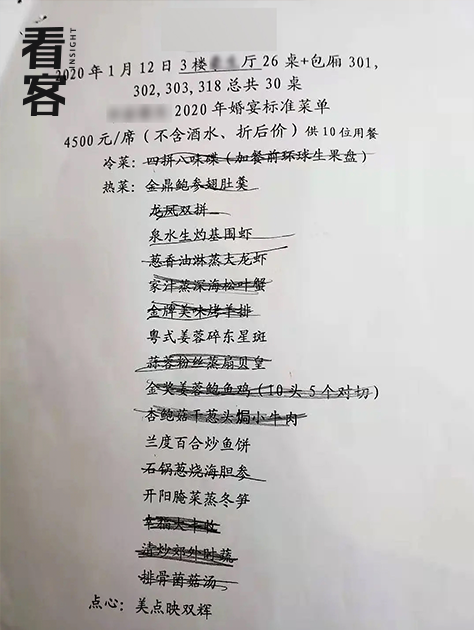 看客
INSIGHT
2020年1月12日3楼 厅26桌+包厢301,
302,303,318总共30桌
2020年婚宴标准菜单
4500元/席（不含酒水、折后价）供10位用餐
冷菜：四拼八味碟（加餐前环球生果盘）
热菜：金鼎鲍参翅肚羹
龙凤双拼
泉水生灼基围虾
葱香油淋蒸大龙虾
家汁蒸深海松叶蟹
金牌美味烤羊排
粤式姜蓉碎东星斑
蒜蓉粉丝蒸扇贝皇
金奖姜蓉鲍鱼鸡（10头5个对切）
杏鲍菇干葱头焗小牛肉
兰度百合炒鱼饼
石锅葱烧海胆参
开阳腌菜蒸冬笋
幸福大丰收
清炒郊外时蔬
排骨菌菇汤
点心：美点映双辉